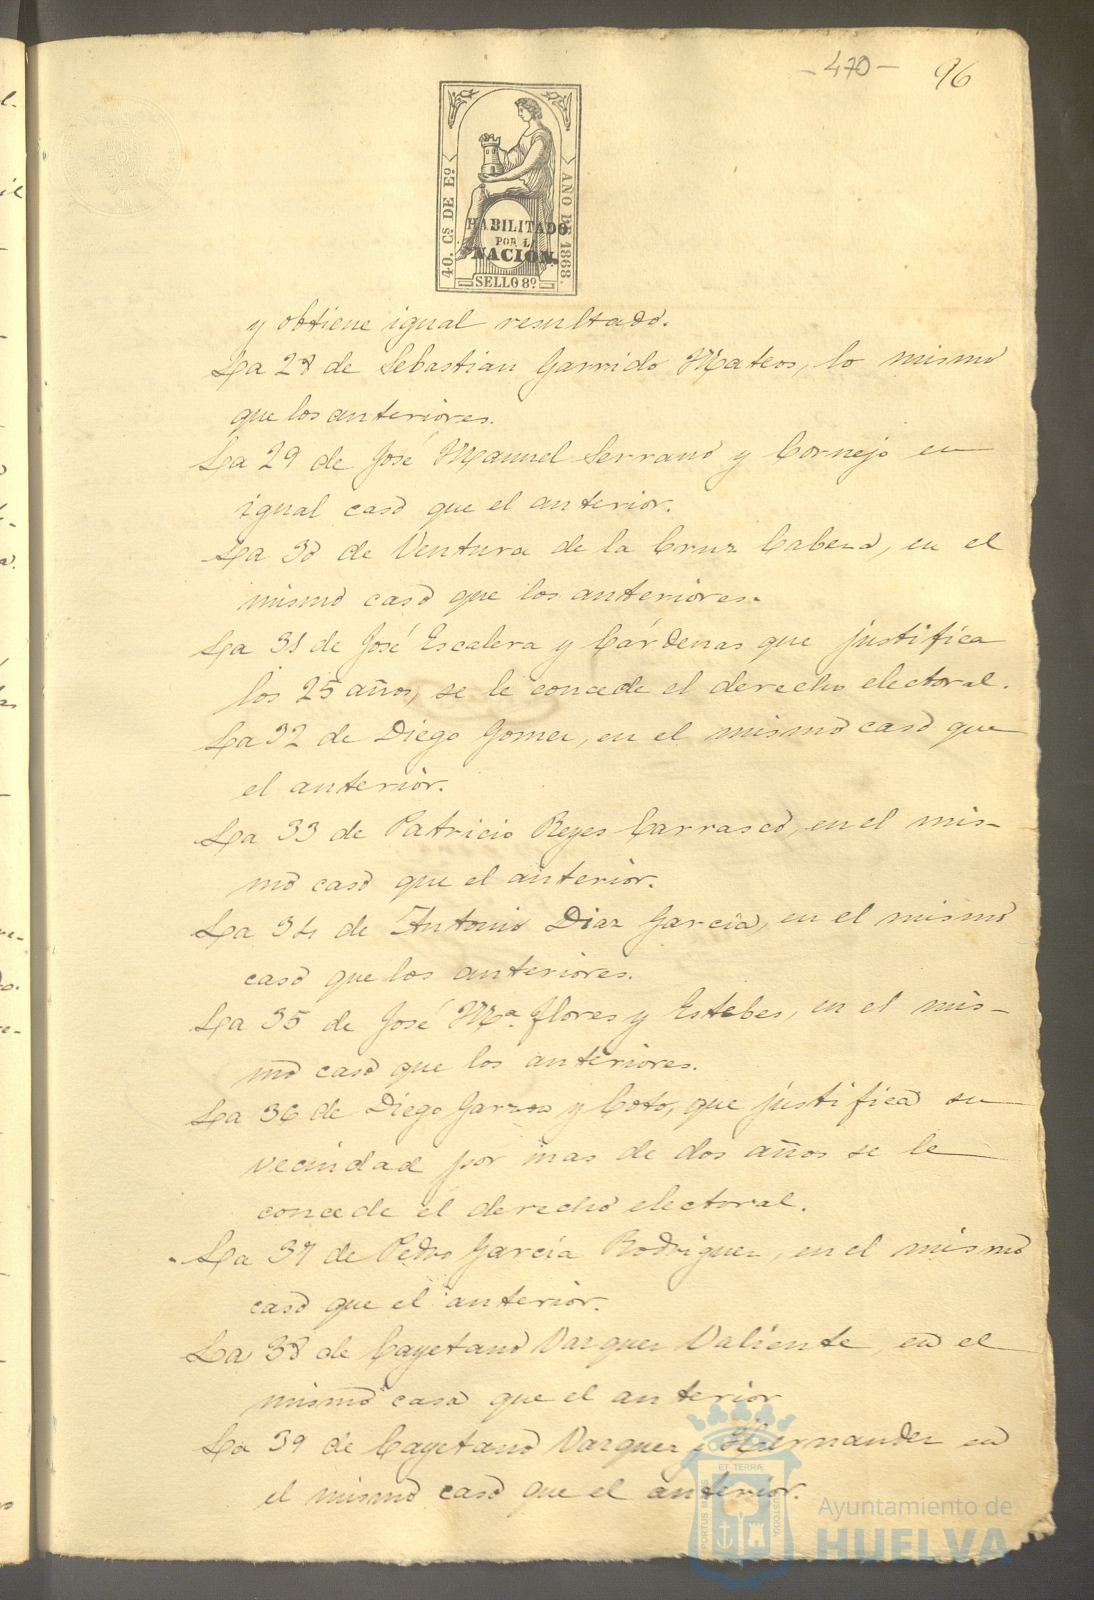 - 470 -
96
40. Cs DE Eo.
AÑO DE 1868.
HABILITADO
POR LA
NACION.
SELLO 8º
y obtiene igual resultado.
La 28 de Sebastian Garrido Mateos, lo mismo
que los anteriores.
La 29 de José Manuel Serrano y Cornejo en
igual caso que el anterior.
La 30 de Ventura de la Cruz Cabeza, en el
mismo caso que los anteriores.
La 31 de José Escalera y Cárdenas que justifica
los 25 años, se le concede el derecho electoral.
La 32 de Diego Gomez, en el mismo caso que
el anterior.
La 33 de Patricio Reyes Carrasco, en el mis-
mo caso que el anterior.
La 34 de Antonio Diaz García, en el mismo
caso que los anteriores.
La 35 de José Mª. Flores y Estebes, en el mis-
mo caso que los anteriores.
La 36 de Diego Garzon y Coto, que justifica su
vecindad por mas de dos años se le
concede el derecho electoral.
La 37 de Pedro García Rodriguez, en el mismo
caso que el anterior.
La 38 de Cayetano Vazquez Valiente, en el
mismo caso que el anterior
La 39 de Cayetano Vazquez y Hernandez en
el mismo caso que el anterior.
ET TERRA
PORTUS MARIS
CUSTODIA
Ayuntamiento de
HUELVA